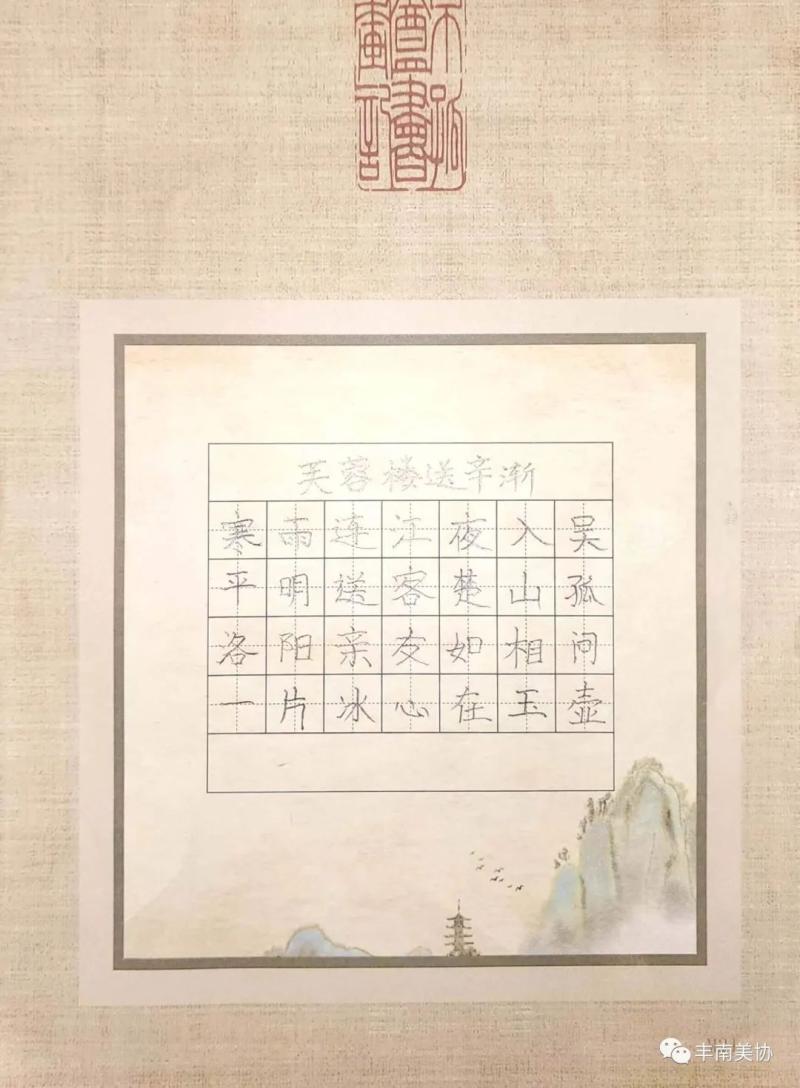 芙蓉楼送辛渐
寒雨连江夜入吴
平明送客楚山孤
洛阳亲友如相问
一片冰心在玉壶
丰南美协